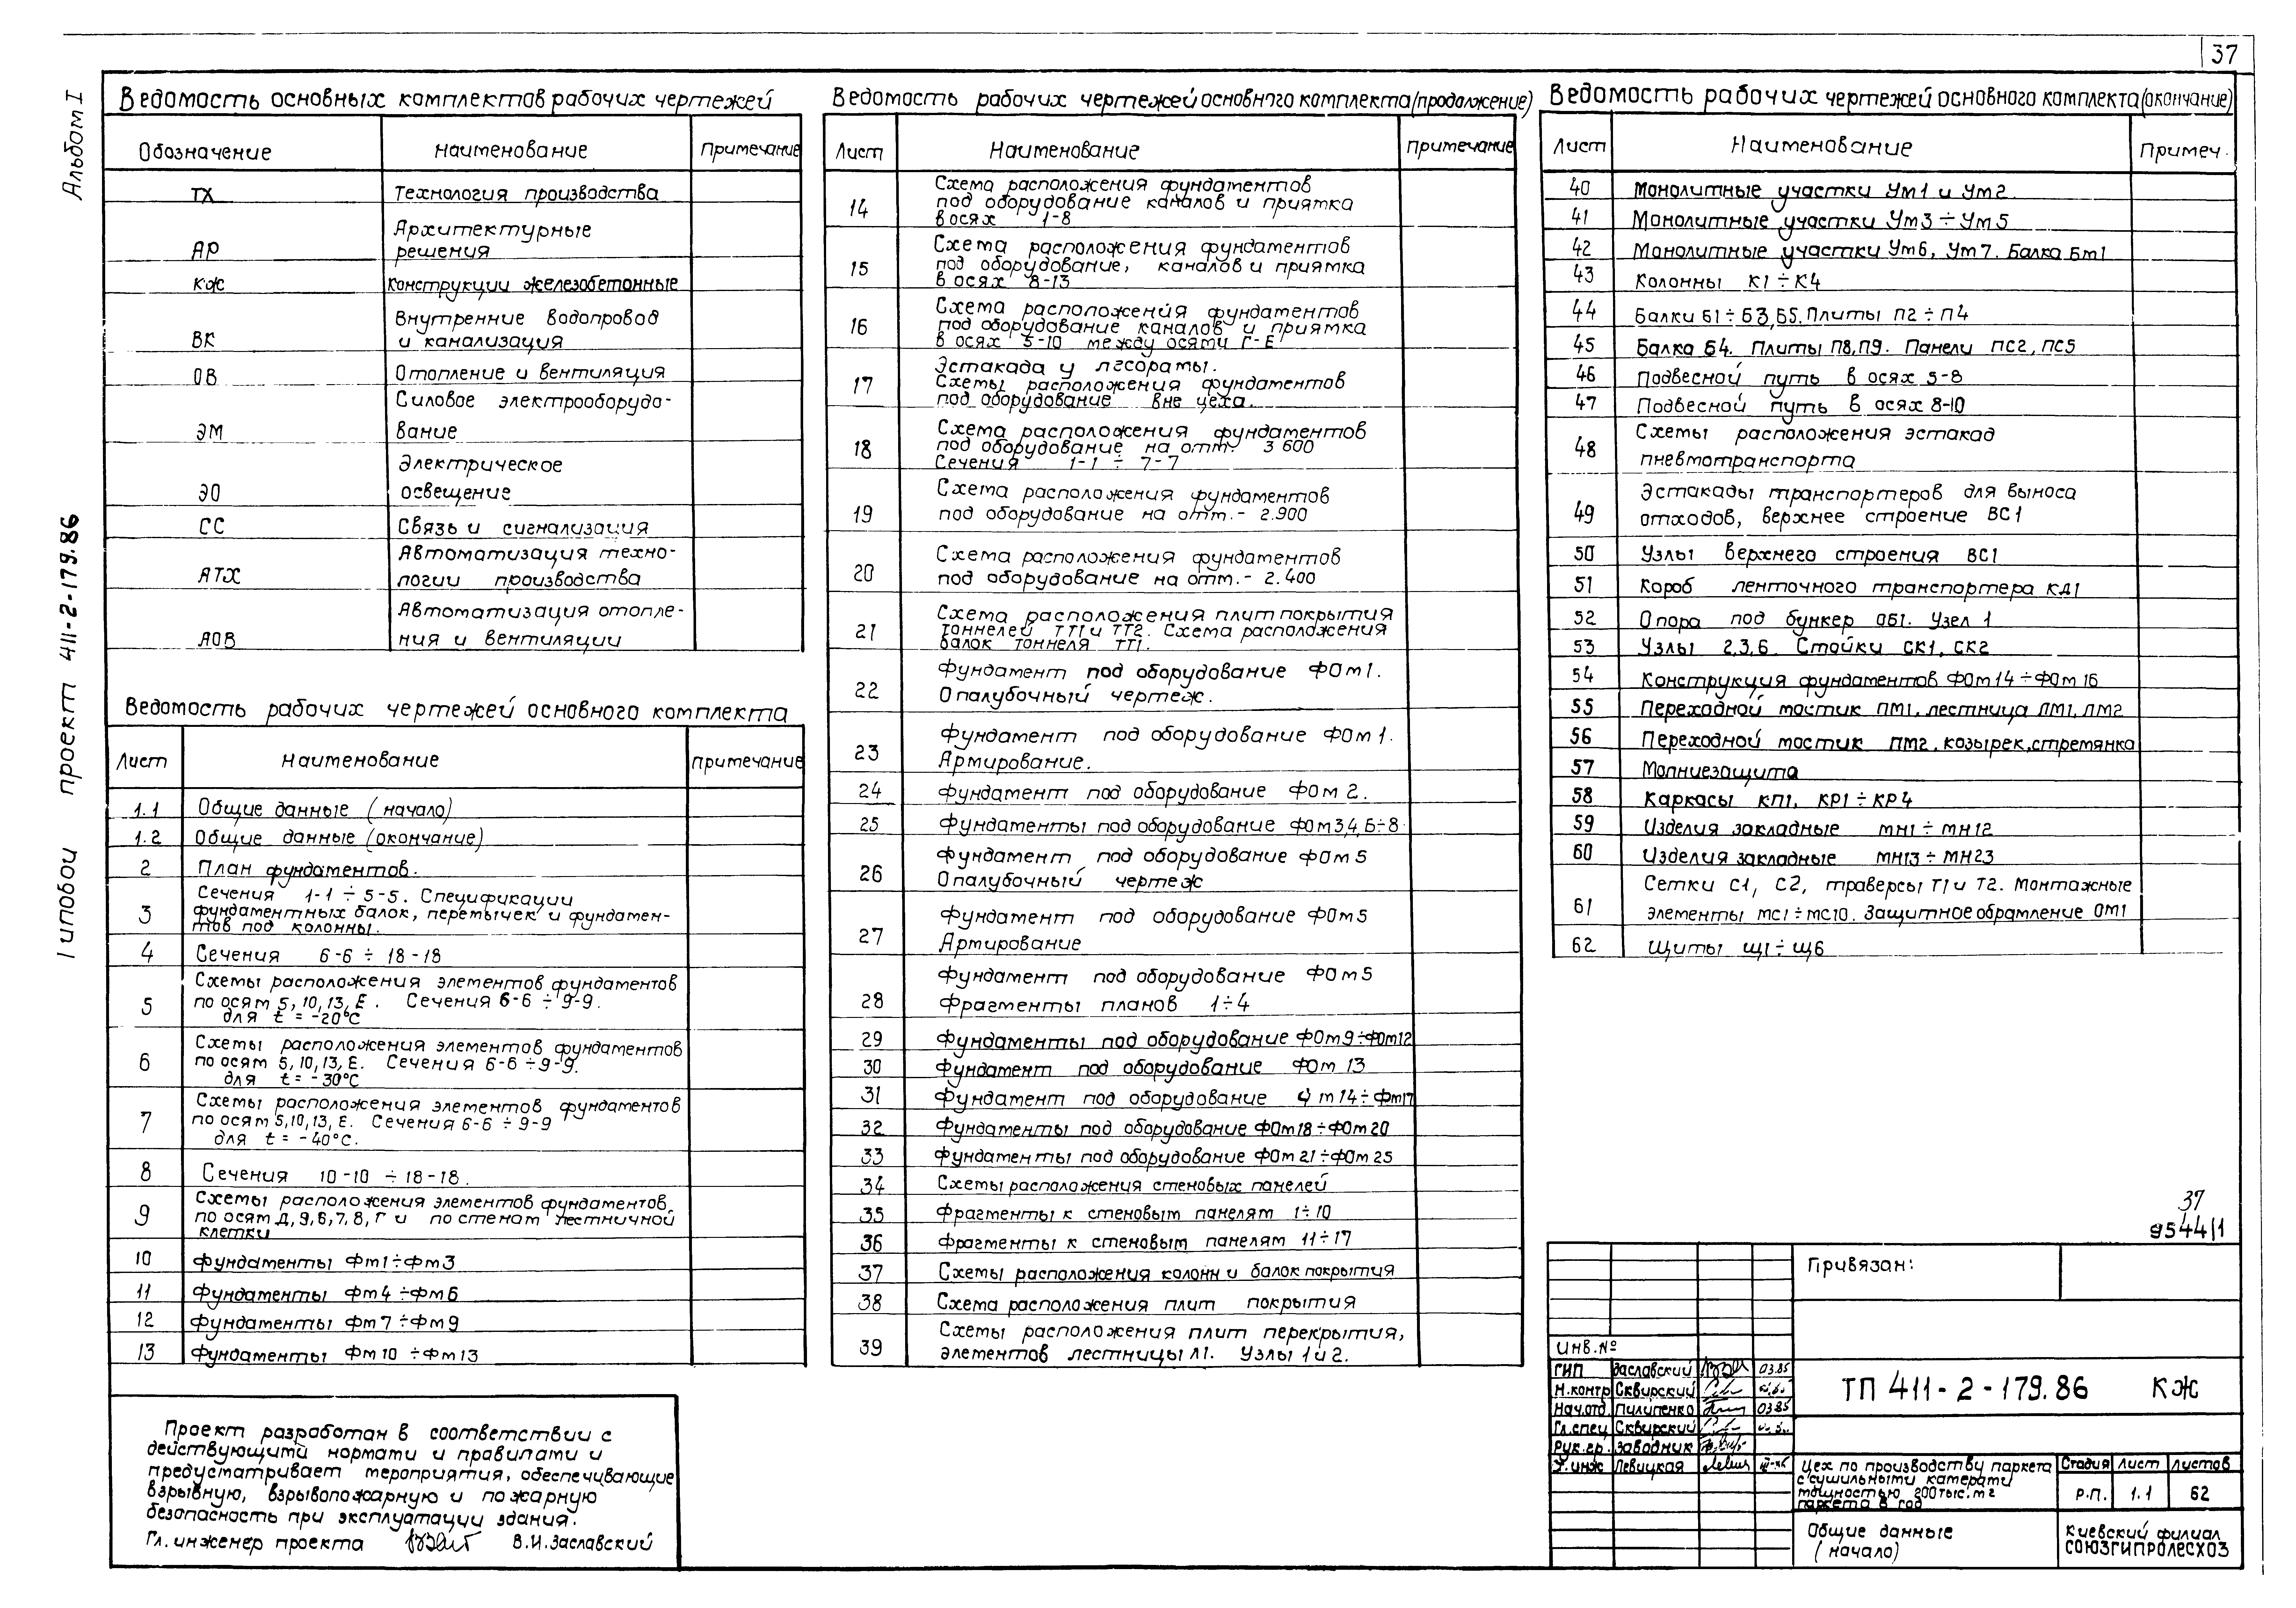 37
Альбом I
Типовой проект 411-2-179.86
Ведомость основных комплектов рабочих чертежей
Обозначение Наименование Примечание
ТХ Технология производства
АР Архитектурные
решения
КЖ Конструкции железобетонные
ВК Внутренние водопровод
и канализация
ОВ Отопление и вентиляция
ЭМ Силовое электрооборудо-
вание
ЭО Электрическое
освещение
СС Связь и сигнализация
АТХ Автоматизация техно-
логии производства
АОВ Автоматизация отопле-
ния и вентиляции
Ведомость рабочих чертежей основного комплекта
Лист Наименование Примечание
1.1 Общие данные (начало)
1.2 Общие данные (окончание)
2 План фундаментов.
3 Сечения 1-1 ÷ 5-5. Спецификации
фундаментных балок, перемычек и фундамен-
тов под колонны.
4 Сечения 6-6 ÷ 18-18
5 Схемы расположения элементов фундаментов
по осям 5, 10, 13, Е. Сечения 6-6 ÷ 9-9.
для t = -20°С
6 Схемы расположения элементов фундаментов
по осям 5, 10, 13, Е. Сечения 6-6 ÷ 9-9.
для t = -30°С
7 Схемы расположения элементов фундаментов
по осям 5, 10, 13, Е. Сечения 6-6 ÷ 9-9
для t = -40°С.
8 Сечения 10-10 ÷ 18-18.
9 Схемы расположения элементов фундаментов
по осям Д, 9, 6, 7, 8, Г и по стенам лестничной
клетки
10 Фундаменты Фм1÷Фм3
11 Фундаменты Фм4÷Фм6
12 Фундаменты Фм7÷Фм9
13 Фундаменты Фм10÷Фм13
Проект разработан в соответствии с
действующими нормами и правилами и
предусматривает мероприятия, обеспечивающие
взрывную, взрывопожарную и пожарную
безопасность при эксплуатации здания.
Гл. инженер проекта В.И. Заславский
Ведомость рабочих чертежей основного комплекта (продолжение)
Лист Наименование Примечание
14 Схема расположения фундаментов
под оборудование каналов и приямка
в осях 1-8
15 Схема расположения фундаментов
под оборудование, каналов и приямка
в осях 8-13
16 Схема расположения фундаментов
под оборудование каналов и приямка
в осях 5-10 между осями Г-Е
17 Эстакада у лесорамы.
Схемы расположения фундаментов
под оборудование вне цеха.
18 Схема расположения фундаментов
под оборудование на отм. 3 600
Сечения 1-1 ÷ 7-7
19 Схема расположения фундаментов
под оборудование на отм. - 2.900
20 Схема расположения фундаментов
под оборудование на отм. - 2.400
21 Схема расположения плит покрытия
тоннелей ТТ1 и ТТ2. Схема расположения
балок тоннеля ТТ1.
22 Фундамент под оборудование ФОм1.
Опалубочный чертеж.
23 Фундамент под оборудование ФОм1.
Армирование.
24 Фундамент под оборудование ФОм2.
25 Фундаменты под оборудование ФОм3,4,6÷8
26 Фундамент под оборудование ФОм5
Опалубочный чертеж
27 Фундамент под оборудование ФОм5
Армирование
28 Фундамент под оборудование ФОм5
Фрагменты планов 1÷4
29 Фундаменты под оборудование ФОм9÷ФОм12
30 Фундамент под оборудование ФОм 13
31 Фундамент под оборудование м14÷Фм17
32 Фундаменты под оборудование ФОм18÷ФОм20
33 Фундаменты под оборудование ФОм21÷ФОм25
34 Схемы расположения стеновых панелей
35 Фрагменты к стеновым панелям 1÷10
36 Фрагменты к стеновым панелям 11÷17
37 Схемы расположения колонн и балок покрытия
38 Схема расположения плит покрытия
39 Схемы расположения плит перекрытия,
элементов лестницы Л1. Узлы 1 и 2.
Ведомость рабочих чертежей основного комплекта (окончание)
Лист Наименование Примеч.
40 Монолитные участки Ум1 и Ум2.
41 Монолитные участки Ум3 ÷ Ум5
42 Монолитные участки Ум6, Ум7. Балка Бм1
43 Колонны К1 ÷ К4
44 Балки Б1÷Б3, Б5. Плиты П2÷П4
45 Балка Б4. Плиты П8, П9. Панели ПС2, ПС5
46 Подвесной путь в осях 5-8
47 Подвесной путь в осях 8-10
48 Схемы расположения эстакад
пневмотранспорта
49 Эстакады транспортеров для выноса
отходов, верхнее строение ВС1
50 Узлы верхнего строения ВС1
51 Короб ленточного транспортера КД1
52 Опора под бункер ОБ1. Узел 1
53 Узлы 2,3,6. Стойки СК1, СК2
54 Конструкция фундаментов ФОм14÷ФОм16
55 Переходной мостик ПМ1, лестница ЛМ1, ЛМ2
56 Переходной мостик ПМ2, козырек, стремянка
57 Молниезащита
58 Каркасы КП1, КР1÷КР4
59 Изделия закладные МН1 ÷ МН12
60 Изделия закладные МН13 ÷ МН23
61 Сетки С1, С2, траверсы Т1 и Т2. Монтажные
элементы МС1÷МС10. Защитное обрамление ОМ1
62 Щиты Щ1÷Щ6
37
9544/1
Привязан:
Инв.№
ГИП Заславский 03.85
Н.контр Сквирский
Нач.отд. Пилипенко 03.85
Гл.спец Сквирский
Рук.гр. Заводник
Ст.инж Левицкая
ТП 411-2-179.86 КЖ
Цех по производству паркета
с сушильными камерами
мощностью 200 тыс. м2
паркета в год
Стадия Лист Листов
Р.П. 1.1 62
Общие данные
(начало)
Киевский филиал
СОЮЗГИПРОЛЕСХОЗ